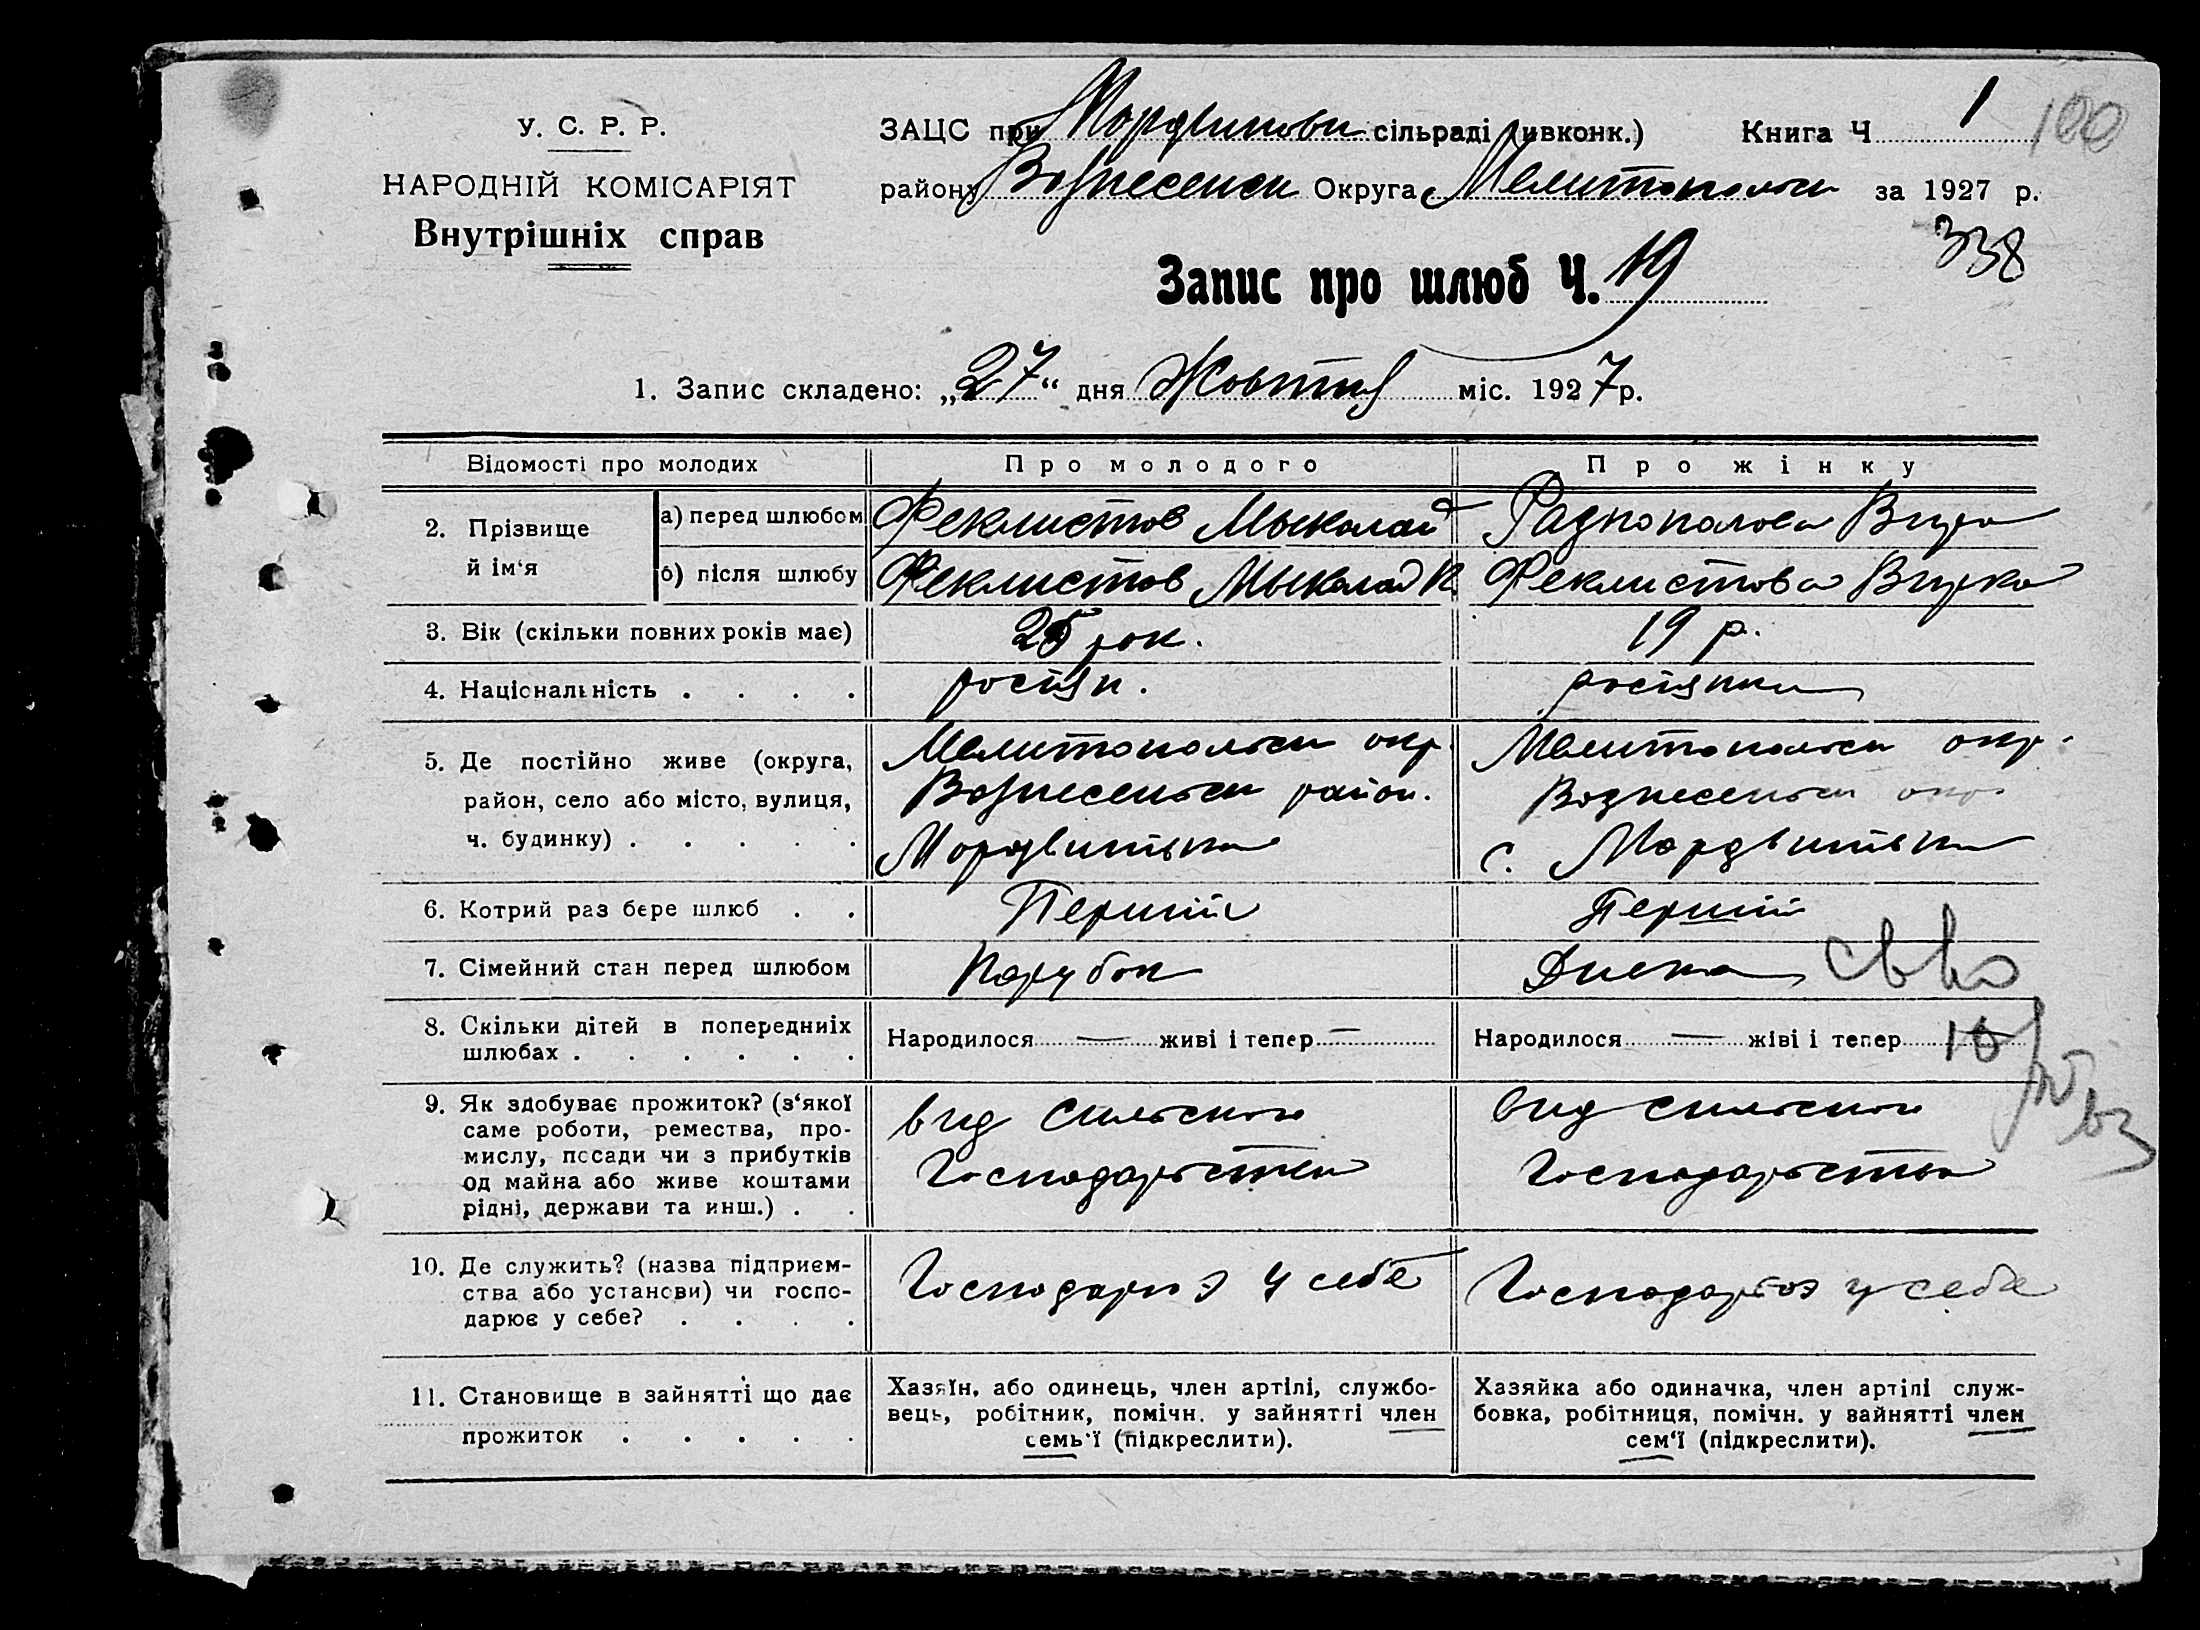 У. С. Р. Р.
НАРОДНІЙ КОМІСАРІЯТ
Внутрішніх справ
ЗАЦС при Мордвинові сільраді (ивконк.) Книга Ч 1 100
району Вознесенськ Округа Мелитопольськ за 1927 р.
338
Запис про шлюб Ч. 19
1. Запис складено: „27“ дня Жовтня міс. 1927 р.
Відомості про молодих Про молодого Про жінку
2. Прізвище й ім‘я
а) перед шлюбом Феклистов Мыколай
б) після шлюбу Феклистов Мыколай Феклистова
3. Вік (скільки повних років має) 25 рок. 19 р.
4. Національність . . . . росіян. росіянка
5. Де постійно живе (округа, Мелитопольськ окр. Мелитопольськ окр.
район, село або місто, вулиця, Вознесенськ район. Вознесенськ окр.
ч. будинку) . . . . . Мордвинівка с. Мордвинівка
6. Котрий раз бере шлюб . . Перший Перший
7. Сімейний стан перед шлюбом Парубок
8. Скільки дітей в попередниіх Народилося — живі і тепер — Народилося — жіві і тепер
шлюбах . . . . . .
9. Як здобуває прожиток? (з‘якої
саме роботи, ремества, про-
мислу, посади чи з прибутків
од майна або живе коштами
рідні, держави та инш.) . .
вид сильского
Господарьства
вид сильского
Господарьства
10. Де служить? (назва підприєм-
ства або установи) чи госпо-
дарює у себе? . . . .
Господарює у себе
Господарює у себе
11. Становище в зайнятті що дає
прожиток . . . . .
Хазяїн, або одинець, член артілі, службо-
вець, робітник, помічн. у зайнятті член
семь‘ї (підкреслити).
Хазяйка або одиначка, член артілі служ-
бовка, робітниця, помічн. у зайнятті член
сем‘ї (підкреслити).